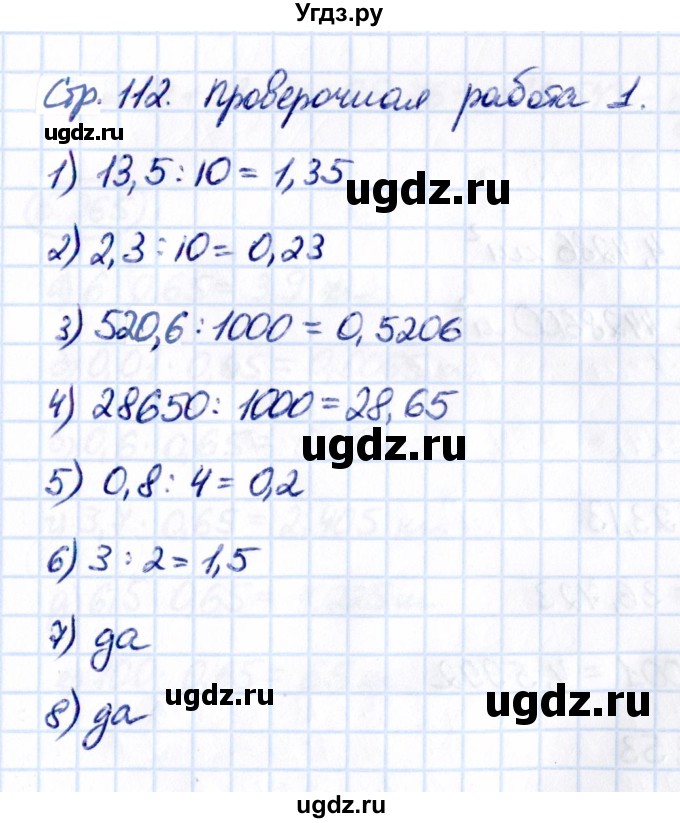 Угдз.ру
Стр. 112. Проверочная работа 1.
ugdz.ru
1) 13,5 : 10 = 1,35
ugdz.ru
2) 2,3 : 10 = 0,23
3) 520,6 : 1000 = 0,5206
4) 28650 : 1000 = 28,65
ugdz.ru
5) 0,8 : 4 = 0,2
6) 3 : 2 = 1,5
7) да
ugdz.ru
ugdz.ru
8) да
ugdz.ru